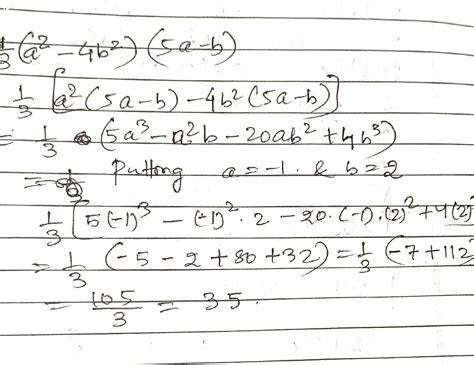 1/3 (a² - 4b²) (5a-b)
1/3 [a² (5a-b) - 4b² (5a-b)]
= 1/3 (5a³ - a²b - 20ab² + 4b³)
= Putting a = -1 & b = 2
1/3 [5(-1)³ - (-1)² · 2 - 20 · (-1) · (2)² + 4(2)
= 1/3 (-5 - 2 + 80 + 32) = 1/3 (-7 + 112
= 105/3 = 35.